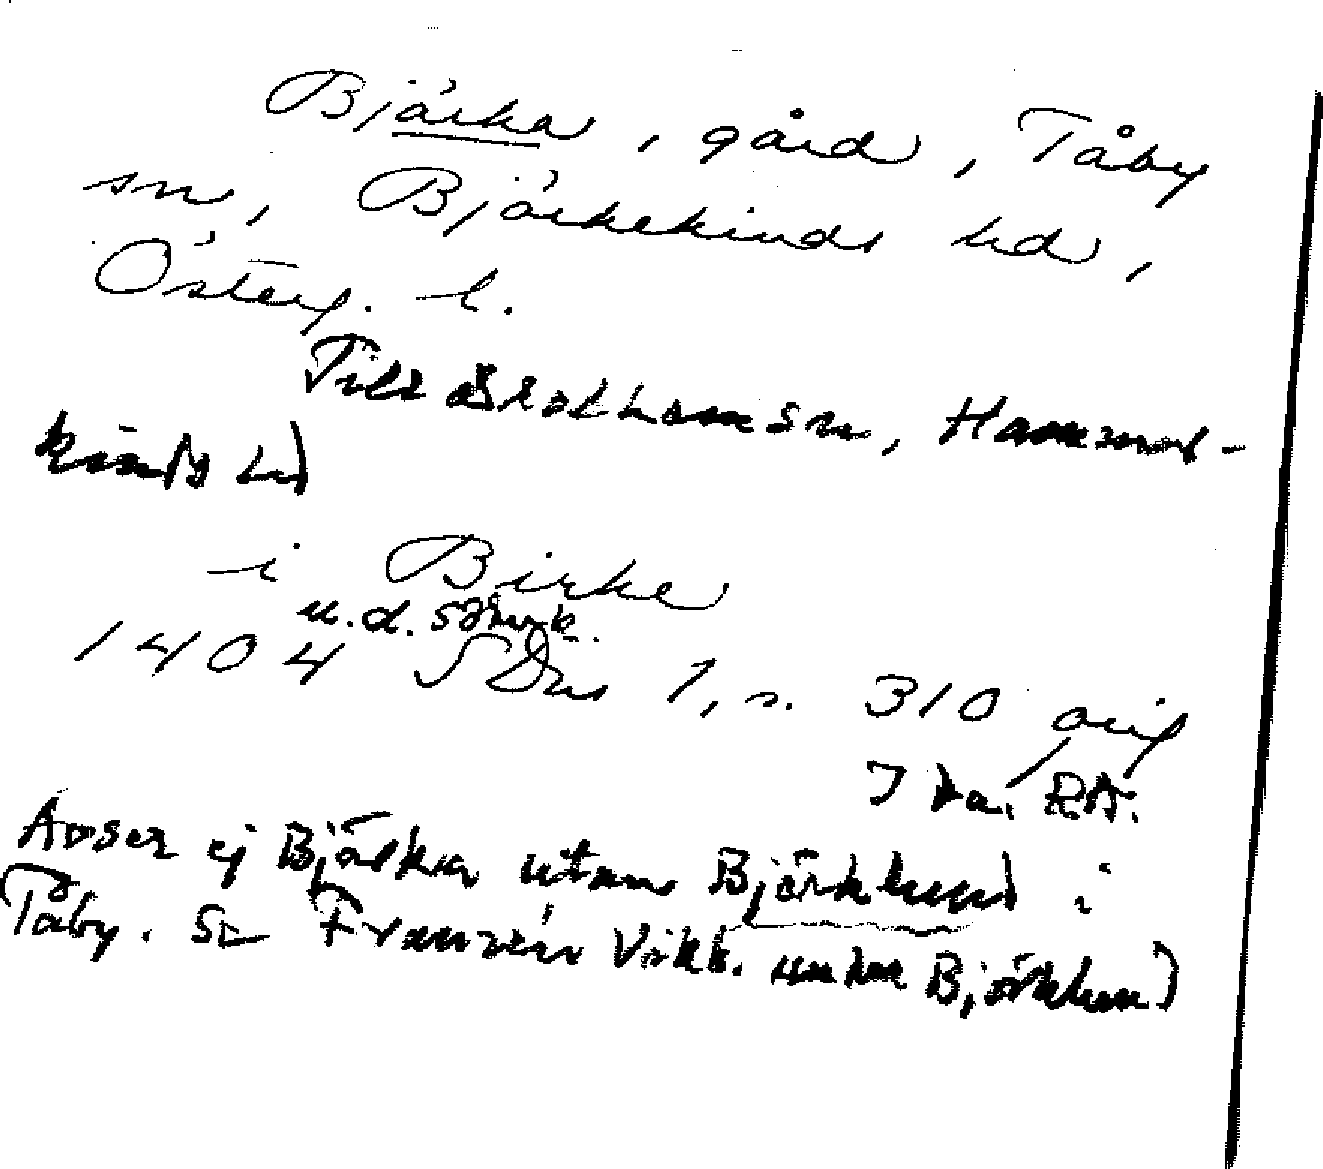 Björka, gård, Tåby
sn, Björkekinds hd,
Österg. l.
Till Skällvik sn, Hammar-
kinds hd
i Birke
u.d. sönik.
1404 SDns 1, s. 310 orig
I ka. RA.
Avser ej Björka utan Björklund i
Tåby. Se Franzén Vikb. under Björklund